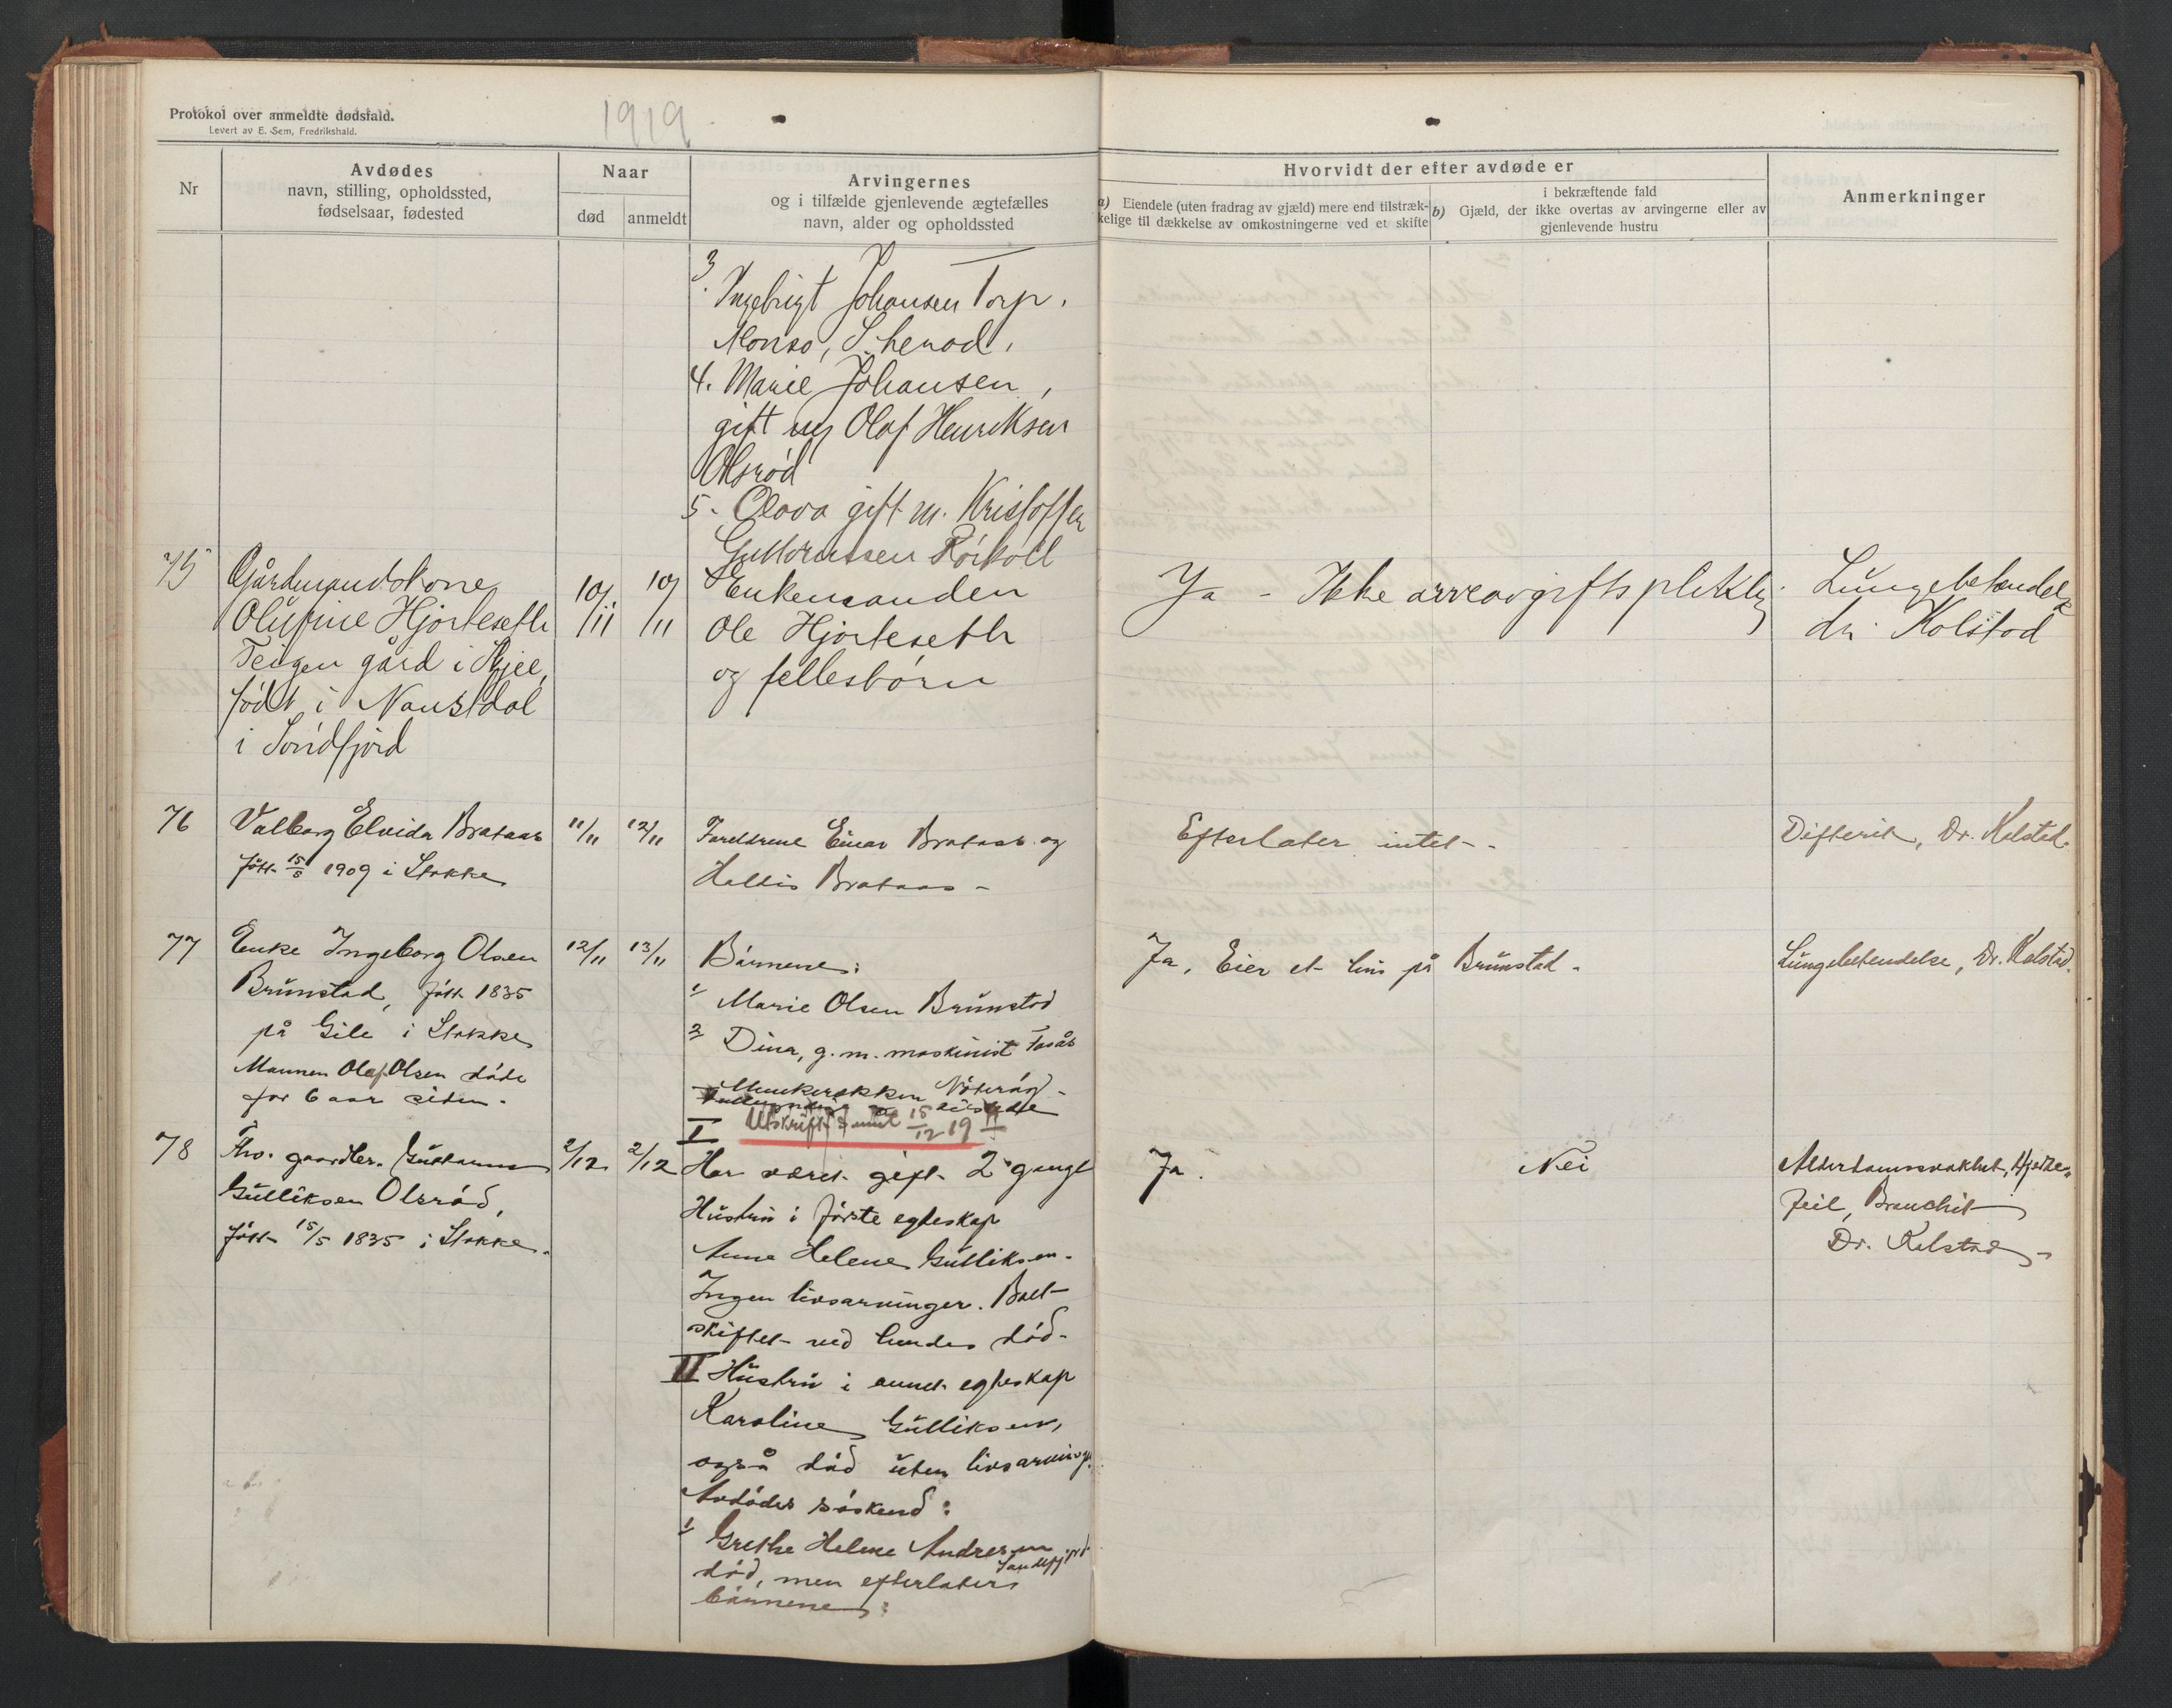 Protokol over anmeldte dødsfald.
Levert av E. Sem, Fredrikshald.
1919.
Nr
Avdødes
navn, stilling, opholdssted,
fødselsaar, fødested
Naar
død
anmeldt
Arvingernes
og i tilfælde gjenlevende ægtefælles
navn, alder og opholdssted
Hvorvidt der efter avdøde er
a) Eiendele (uten fradrag av gjæld) mere end tilstræk-
kelige til dækkelse av omkostningerne ved et skifte
i bekræftende fald
b) Gjæld, der ikke overtas av arvingerne eller av
gjenlevende hustru
Anmerkninger
3. Ingebrigt Johansen Torp,
S. herad.
4. Marie Johansen,
gift m Olaf Henriksen
Olsrød
5. Olava gift m. Kristoffer
Guttormsen
75
Gårdmandskone
Olufine Hjorteseth
Teigen gård i
født i Naustdal
i Søndfjord
10/11
10/11
Enkemanden
Ole Hjorteseth
og fellesbörn
Ja - Ikke arveavgiftspliktig.
Lungebetendelse
dr. Kolstad
76
Valborg Elvida Brataas
født 15/5 1909 i Stokke
11/11
12/11
Foreldrene Einar Brataas og
Haldis Brataas -
Efterlater intet -.
Difterit, Dr. Kolstad.
77
Enke Ingeborg Olsen
Brunstad, født 1835
på Gile i Stokke
Mannen Olaf Olsen døde
for 6 aar siden.
12/11
13/11
Børnene:
1 Marie Olsen Brunstad
2 Dina, g. m. maskinist Fosås
Munkerekken Nøterøy -
Utskrift 15/12 19
Ja, Eier et hus på Brunstad.
Lungebetendelse, Dr. Kolstad.
78
Fhv. gaardbr. Guttorm
Gulliksen Olsrød,
født 15/5 1835 i Stokke.
2/12
2/12
I
Har været gift 2 gange
Hustru i første egteskap
Anne Helene Gulliksen.
Ingen livsarvinger. Boet
skiftet ved hendes død.
II Hustru i annet egteskap
Karoline Gulliksen,
også død uten livsarving.
Avdødes søskend:
1 Grethe Helene Andresen
Sandefjord
død, men efterlater
børnene:
Ja.
Nei
Alderdomssvakhet, Hjerte-
feil, Bronchit
Dr. Kolstad -